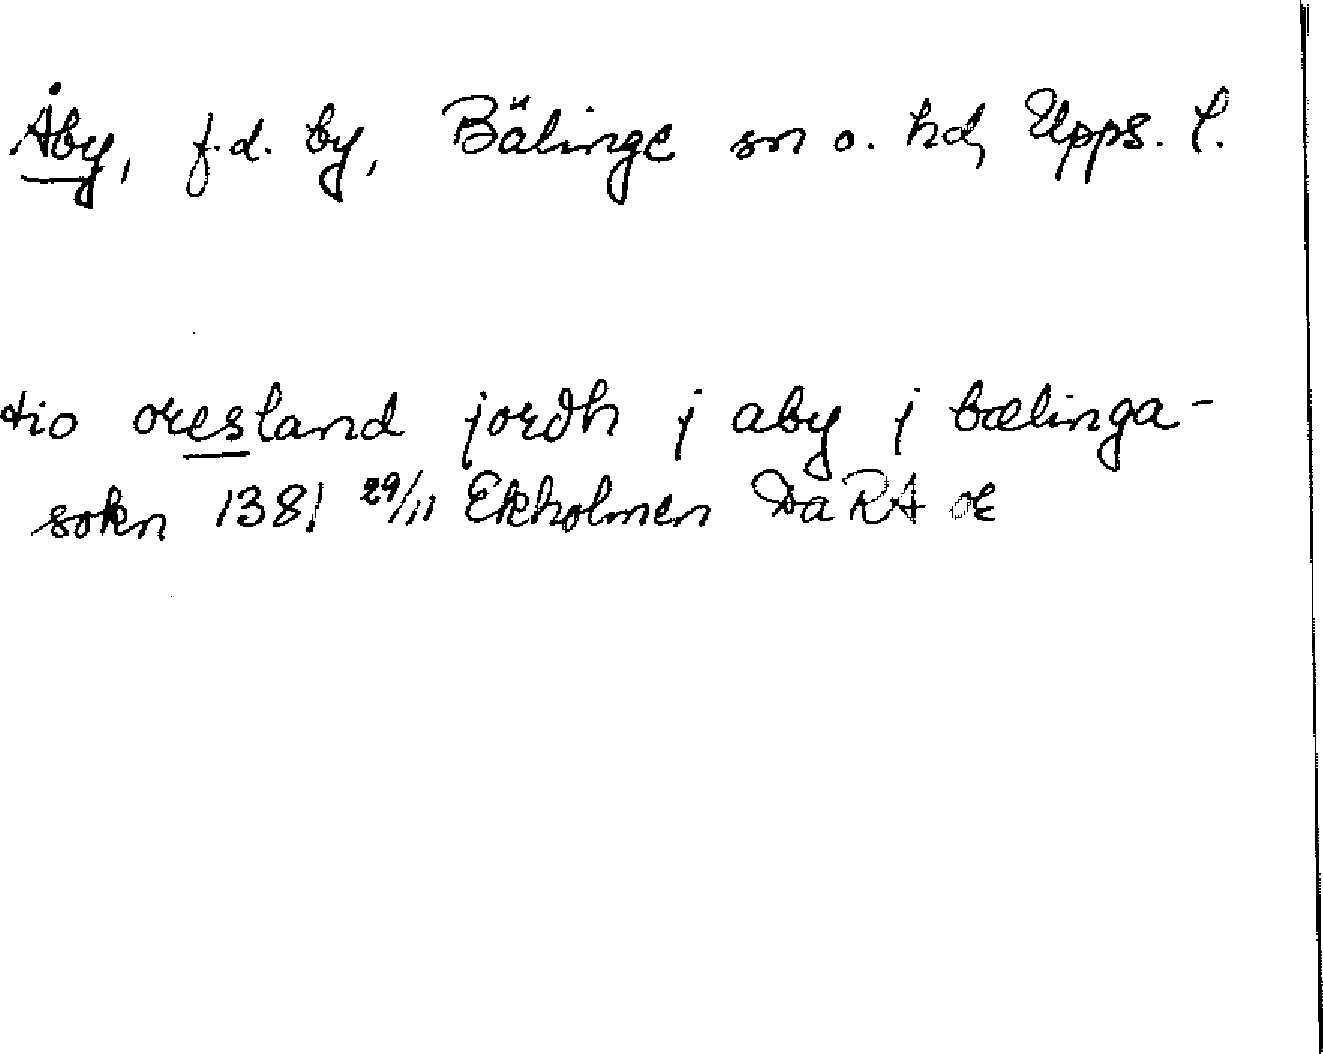 Åby, f.d. by, Bälinge sn o. hd, Upps. l.
tio oresland jordh j aby j bælinga-
sokn 1381 29/11 Ekholmen Da RA or